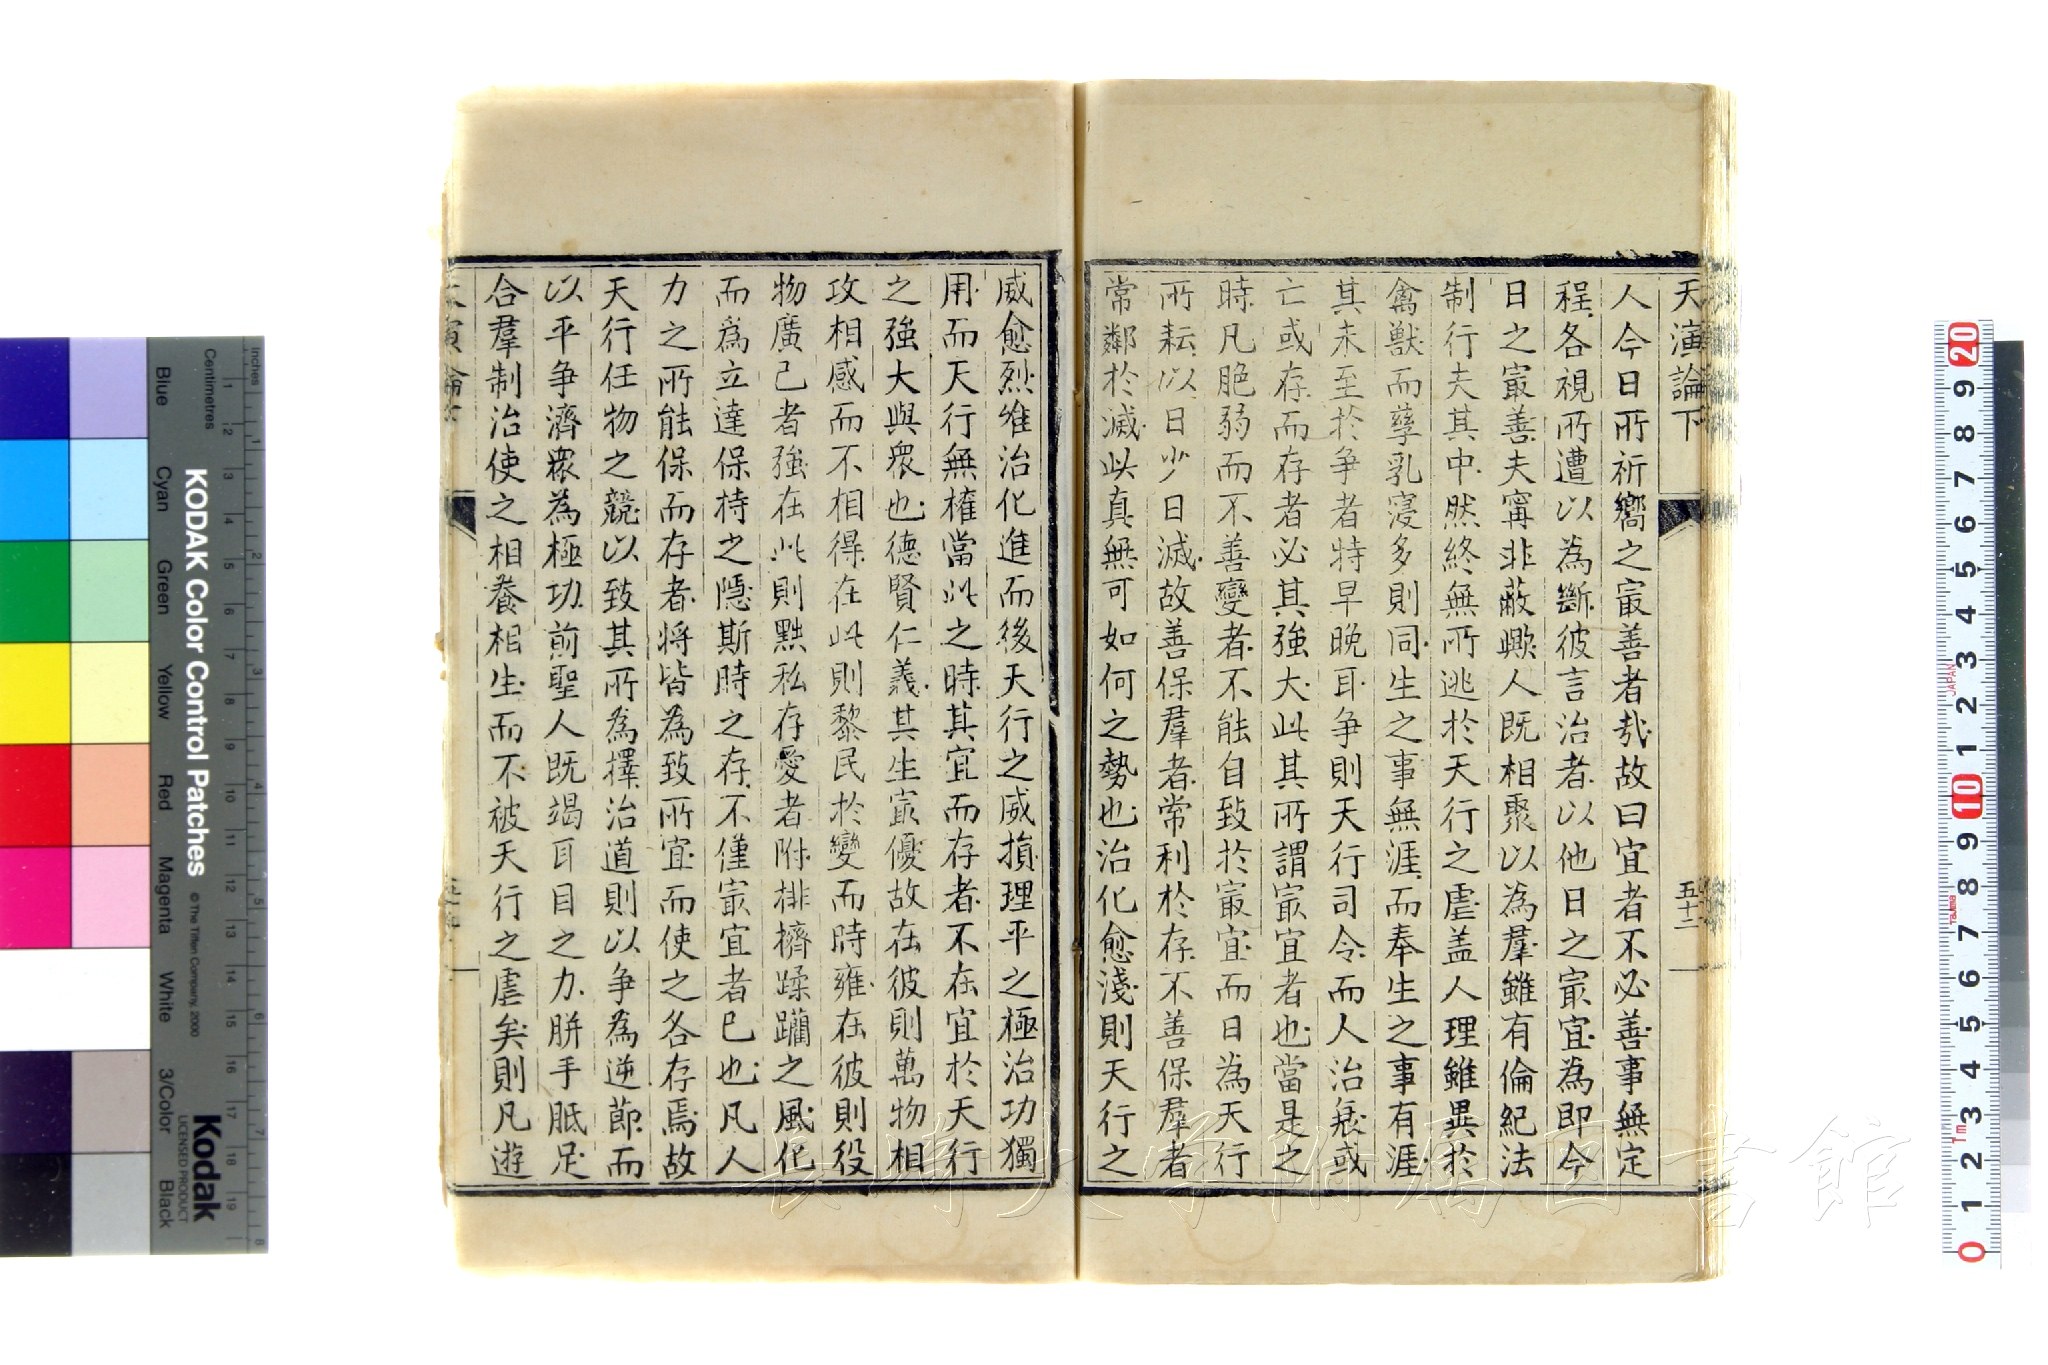 天演論下
五十二
人今日所祈嚮之㝡善者哉故曰宜者不必善事無定
程各視所遭以為斷彼言治者以他日之㝡宜為即今
日之㝡善夫寧非蔽歟人既相聚以為羣雖有倫紀法
制行夫其中然終無所逃於天行之虐蓋人理雖異於
禽獸而孳乳寖多則同生之事無涯而奉生之事有涯
其未至於争者特早晚耳争則天行司令而人治衰或
亡或存而存者必其強大此其所謂㝡宜者也當是之
時凡脆弱而不善變者不能自致於㝡宜而日為天行
所耘以日少日滅故善保羣者常利於存不善保羣者
常鄰於滅此真無可如何之勢也治化愈淺則天行之
威愈烈惟治化進而後天行之威損理平之極治功獨
用而天行無權當此之時其宜而存者不在宜於天行
之強大與衆也德賢仁義其生㝡優故在彼則萬物相
攻相感而不相得在此則黎民於變而時雍在彼則役
物廣己者強在此則黜私存愛者附排擠蹂躪之風化
而爲立達保持之隱斯時之存不僅㝡宜者已也凡人
力之所能保而存者將皆為致所宜而使之各存焉故
天行任物之競以致其所為擇治道則以争為逆節而
以平争濟衆為極功前聖人既竭耳目之力胼手胝足
合羣制治使之相養相生而不被天行之虐矣則凡遊
KODAK Color Control Patches
© The Tiffen Company, 2000
Kodak
LICENSED PRODUCT
Inches
Centimetres
Blue
Cyan
Green
Yellow
Red
Magenta
White
3/Color
Black
JAPAN
Tajima
Tm
長崎大学附属図書館